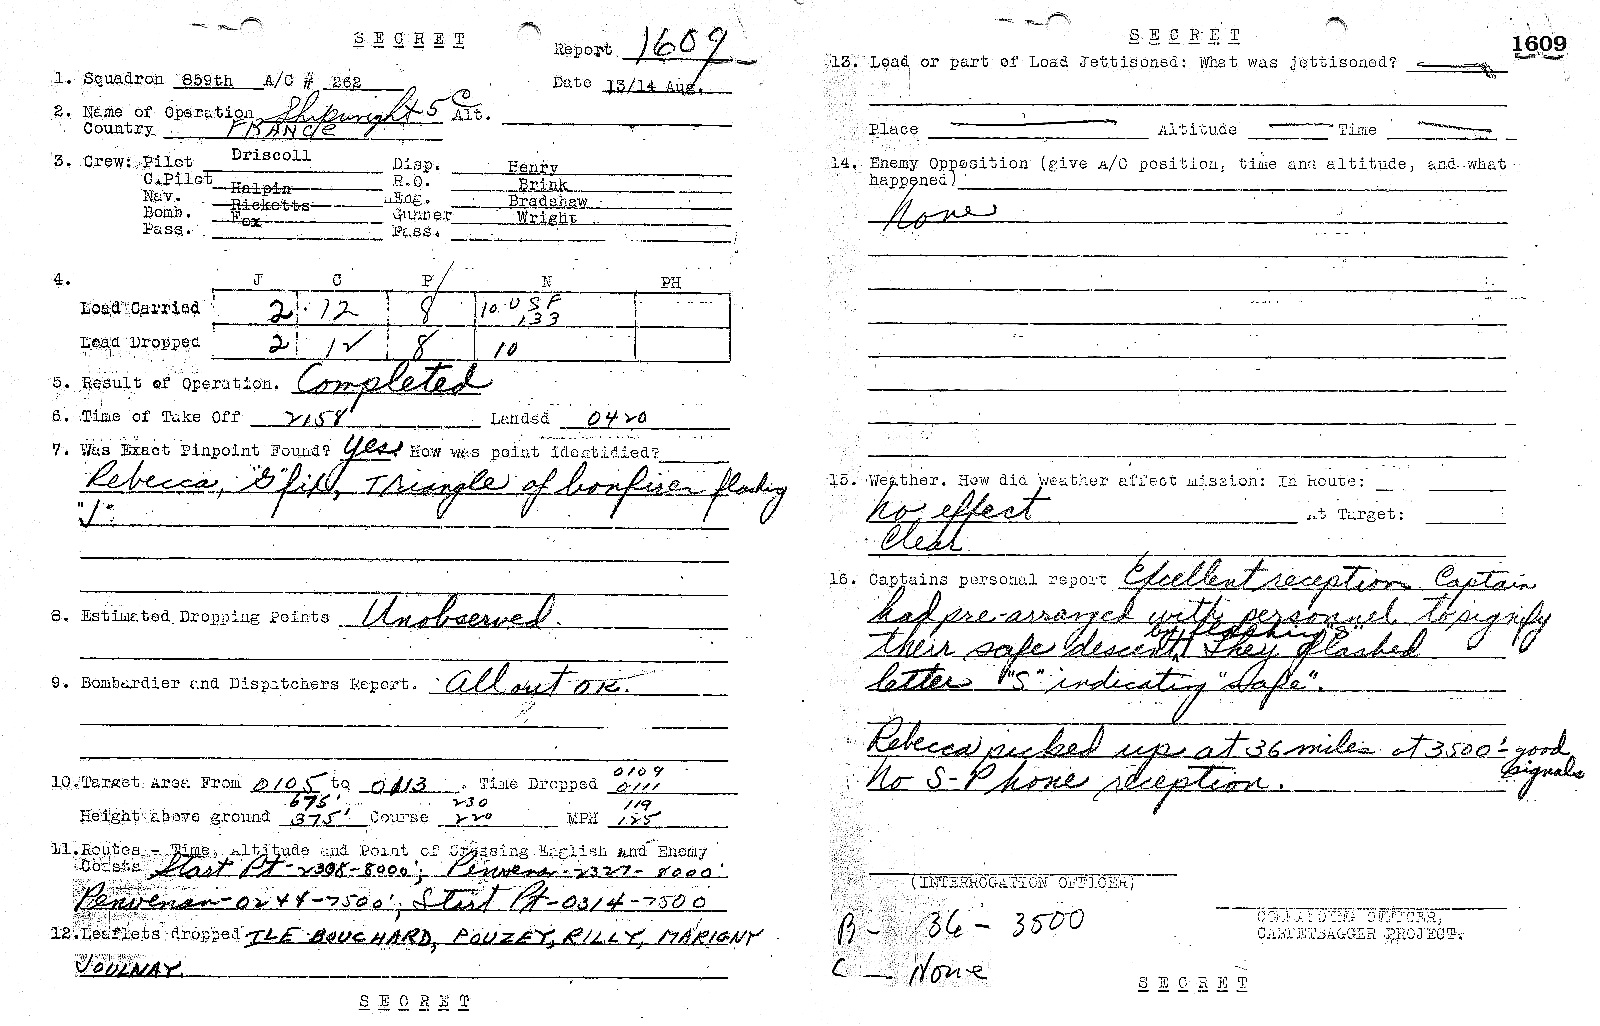 SECRET
Report 1609
1. Squadron 859th A/C # 262 Date 13/14 Aug.
2. Name of Operation Shipwright 5 C Alt.
Country FRANCE
3. Crew: Pilot Driscoll Disp. Henry
C.Pilot Halpin R.O. Brink
Nav. Ricketts Eng. Bradshaw
Bomb. Fox Gunner Wright
Pass. Pass.
4. J C P/ N PH
Load Carried 2 12 8 10 USF 133
Load Dropped 2 12 8 10
5. Result of Operation. Completed
6. Time of Take Off 2158 Landed 0420
7. Was Exact Pinpoint Found? Yes. How was point identidied?
Rebecca, "G" fix, Triangle of bonfires flashing
"J".
8. Estimated Dropping Points Unobserved.
9. Bombardier and Dispatchers Report. All out OK.
10. Target Area From 0105 to 0113. Time Dropped 0109 0111
Height above ground 675' 375' Course 230 220 MPH 119 125
11. Routes - Time, Altitude and Point of Crossing English and Enemy
Coasts Start Pt-2308-8000'; Penvenan-2327-8000'
Penvenan-0244-7500'; Start Pt-0314-7500
12. Leaflets dropped ILE BOUCHARD, POUZEY, RILLY, MARIGNY
JOULNAY.
SECRET
SECRET
1609
13. Load or part of Load Jettisoned: What was jettisoned?
Place Altitude Time
14. Enemy Opposition (give A/C position, time and altitude, and what
happened)
None
15. Weather. How did weather affect mission: In Route:
No effect At Target:
Clear
16. Captains personal report Excellent reception. Captain
had pre-arranged with personnel to signify
their safe descent by flashing "S". They flashed
letter "S" indicating "safe".
Rebecca picked up at 36 miles at 3500'- good
signals
No S-Phone reception.
(INTERROGATION OFFICER)
B- 36 - 3500
C - None
COMMANDING OFFICER,
CARPETBAGGER PROJECT.
SECRET